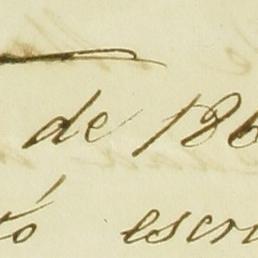 de 186
ó escri